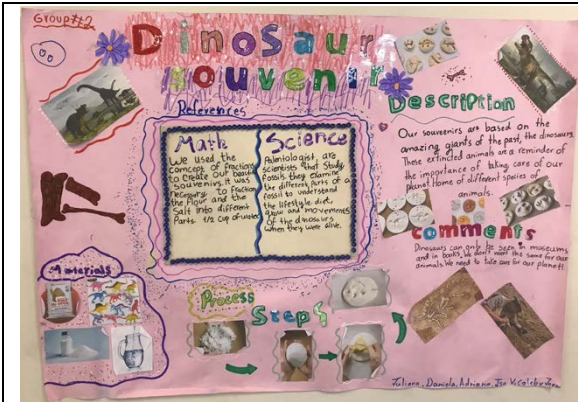 Group #2
Dinosaur
souvenir
References
Math
We used the
comcept of fractions
to create our beauti
souvenirs. it was
necessary to fraction
the flour and the
Salt into different
Parts 1/2 cup of water
Science
are
scientists that Study
Fossils they examine
the different parts of a
fossil to understand
the lifestyle, diet,
grow and movements
of the dinosaurs
when they were alive.
Description
Our souvenirs are based on the
amazing giants of the past, the dinosaurs
These extincted animals are a reminder of
the importance of taking care of our
planet. Home of different species of
animals.
comments
Dinosaurs can only be seen in museums
and in books. We don't want the same for our
animals. We need to take care for our planet!
Materials
Process
Steps
Juliana, Daniela, Adriana,